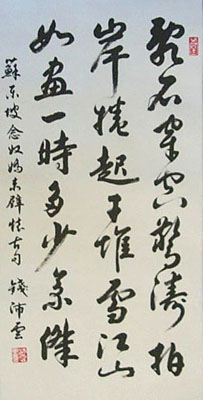 乱石穿空惊涛拍
岸捲起千堆雪江山
如画一時多少豪傑
蘇东坡念奴嬌赤壁懷古句 錢沛雲